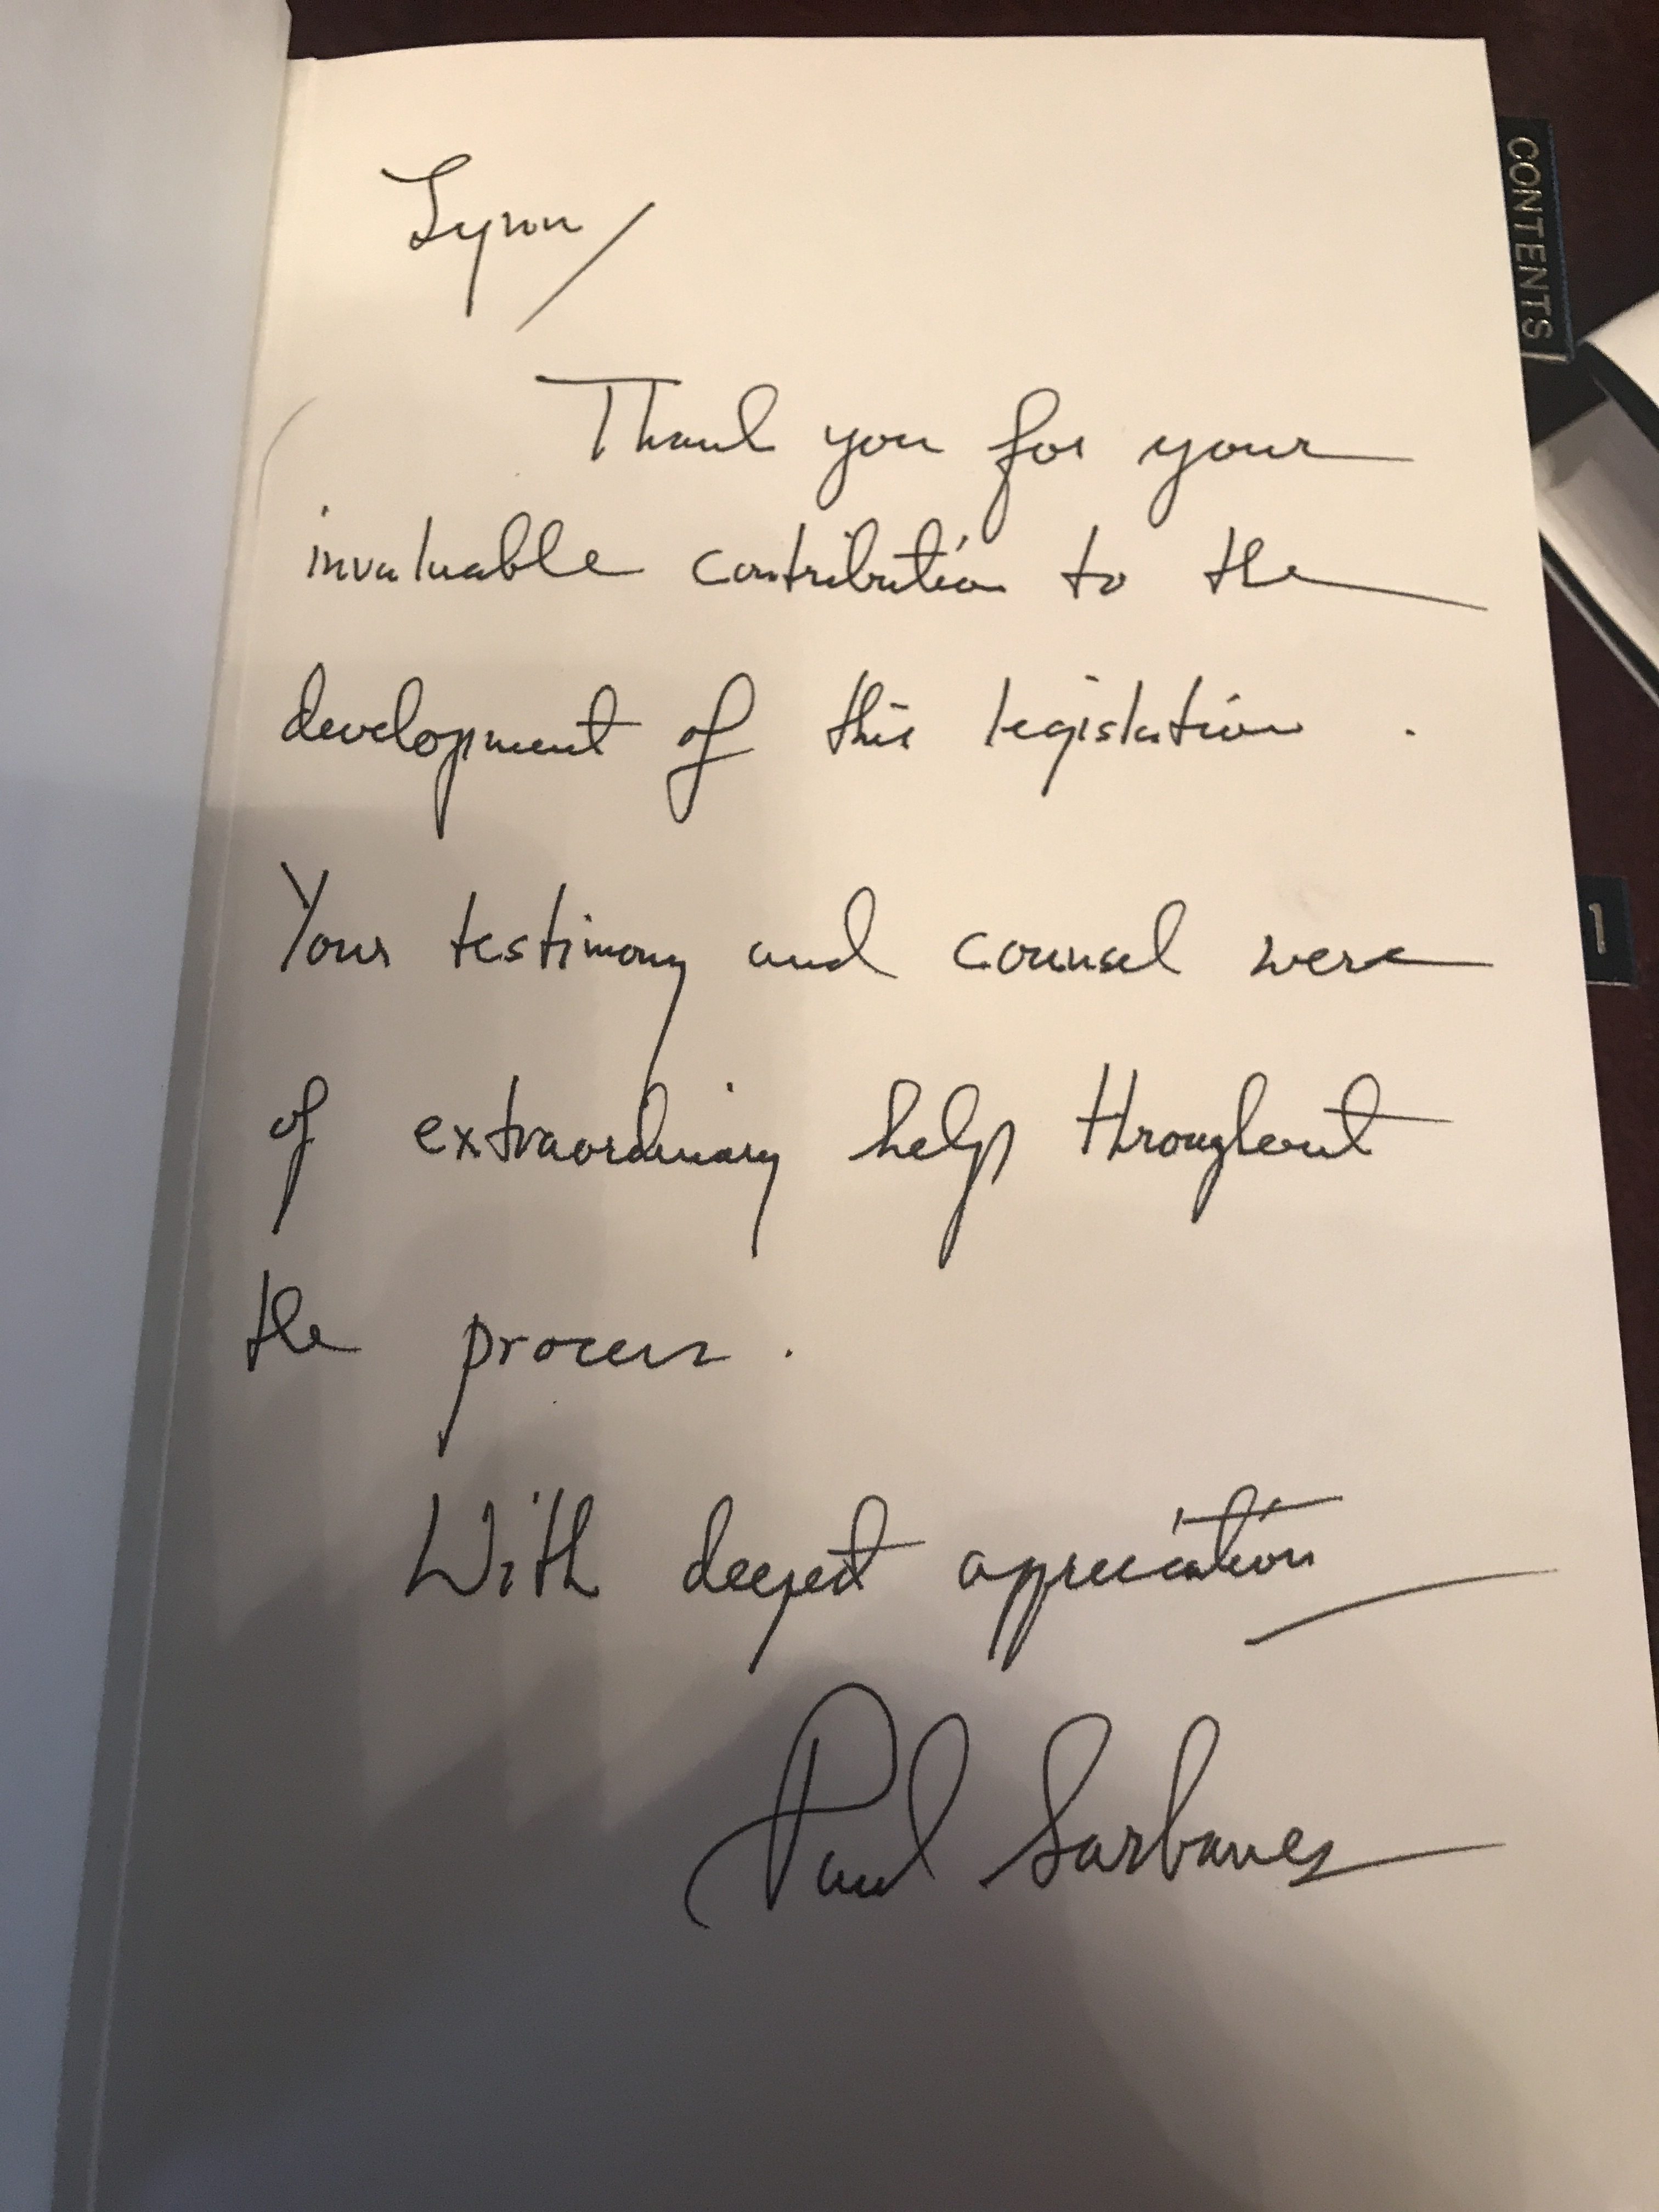 Lynn/
Thank you for your
invaluable contribution to the
development of this legislation.
Your testimony and counsel were
of extraordinary help throughout
the process.
With deepest appreciation
Paul Sarbanes
CONTENTS
1